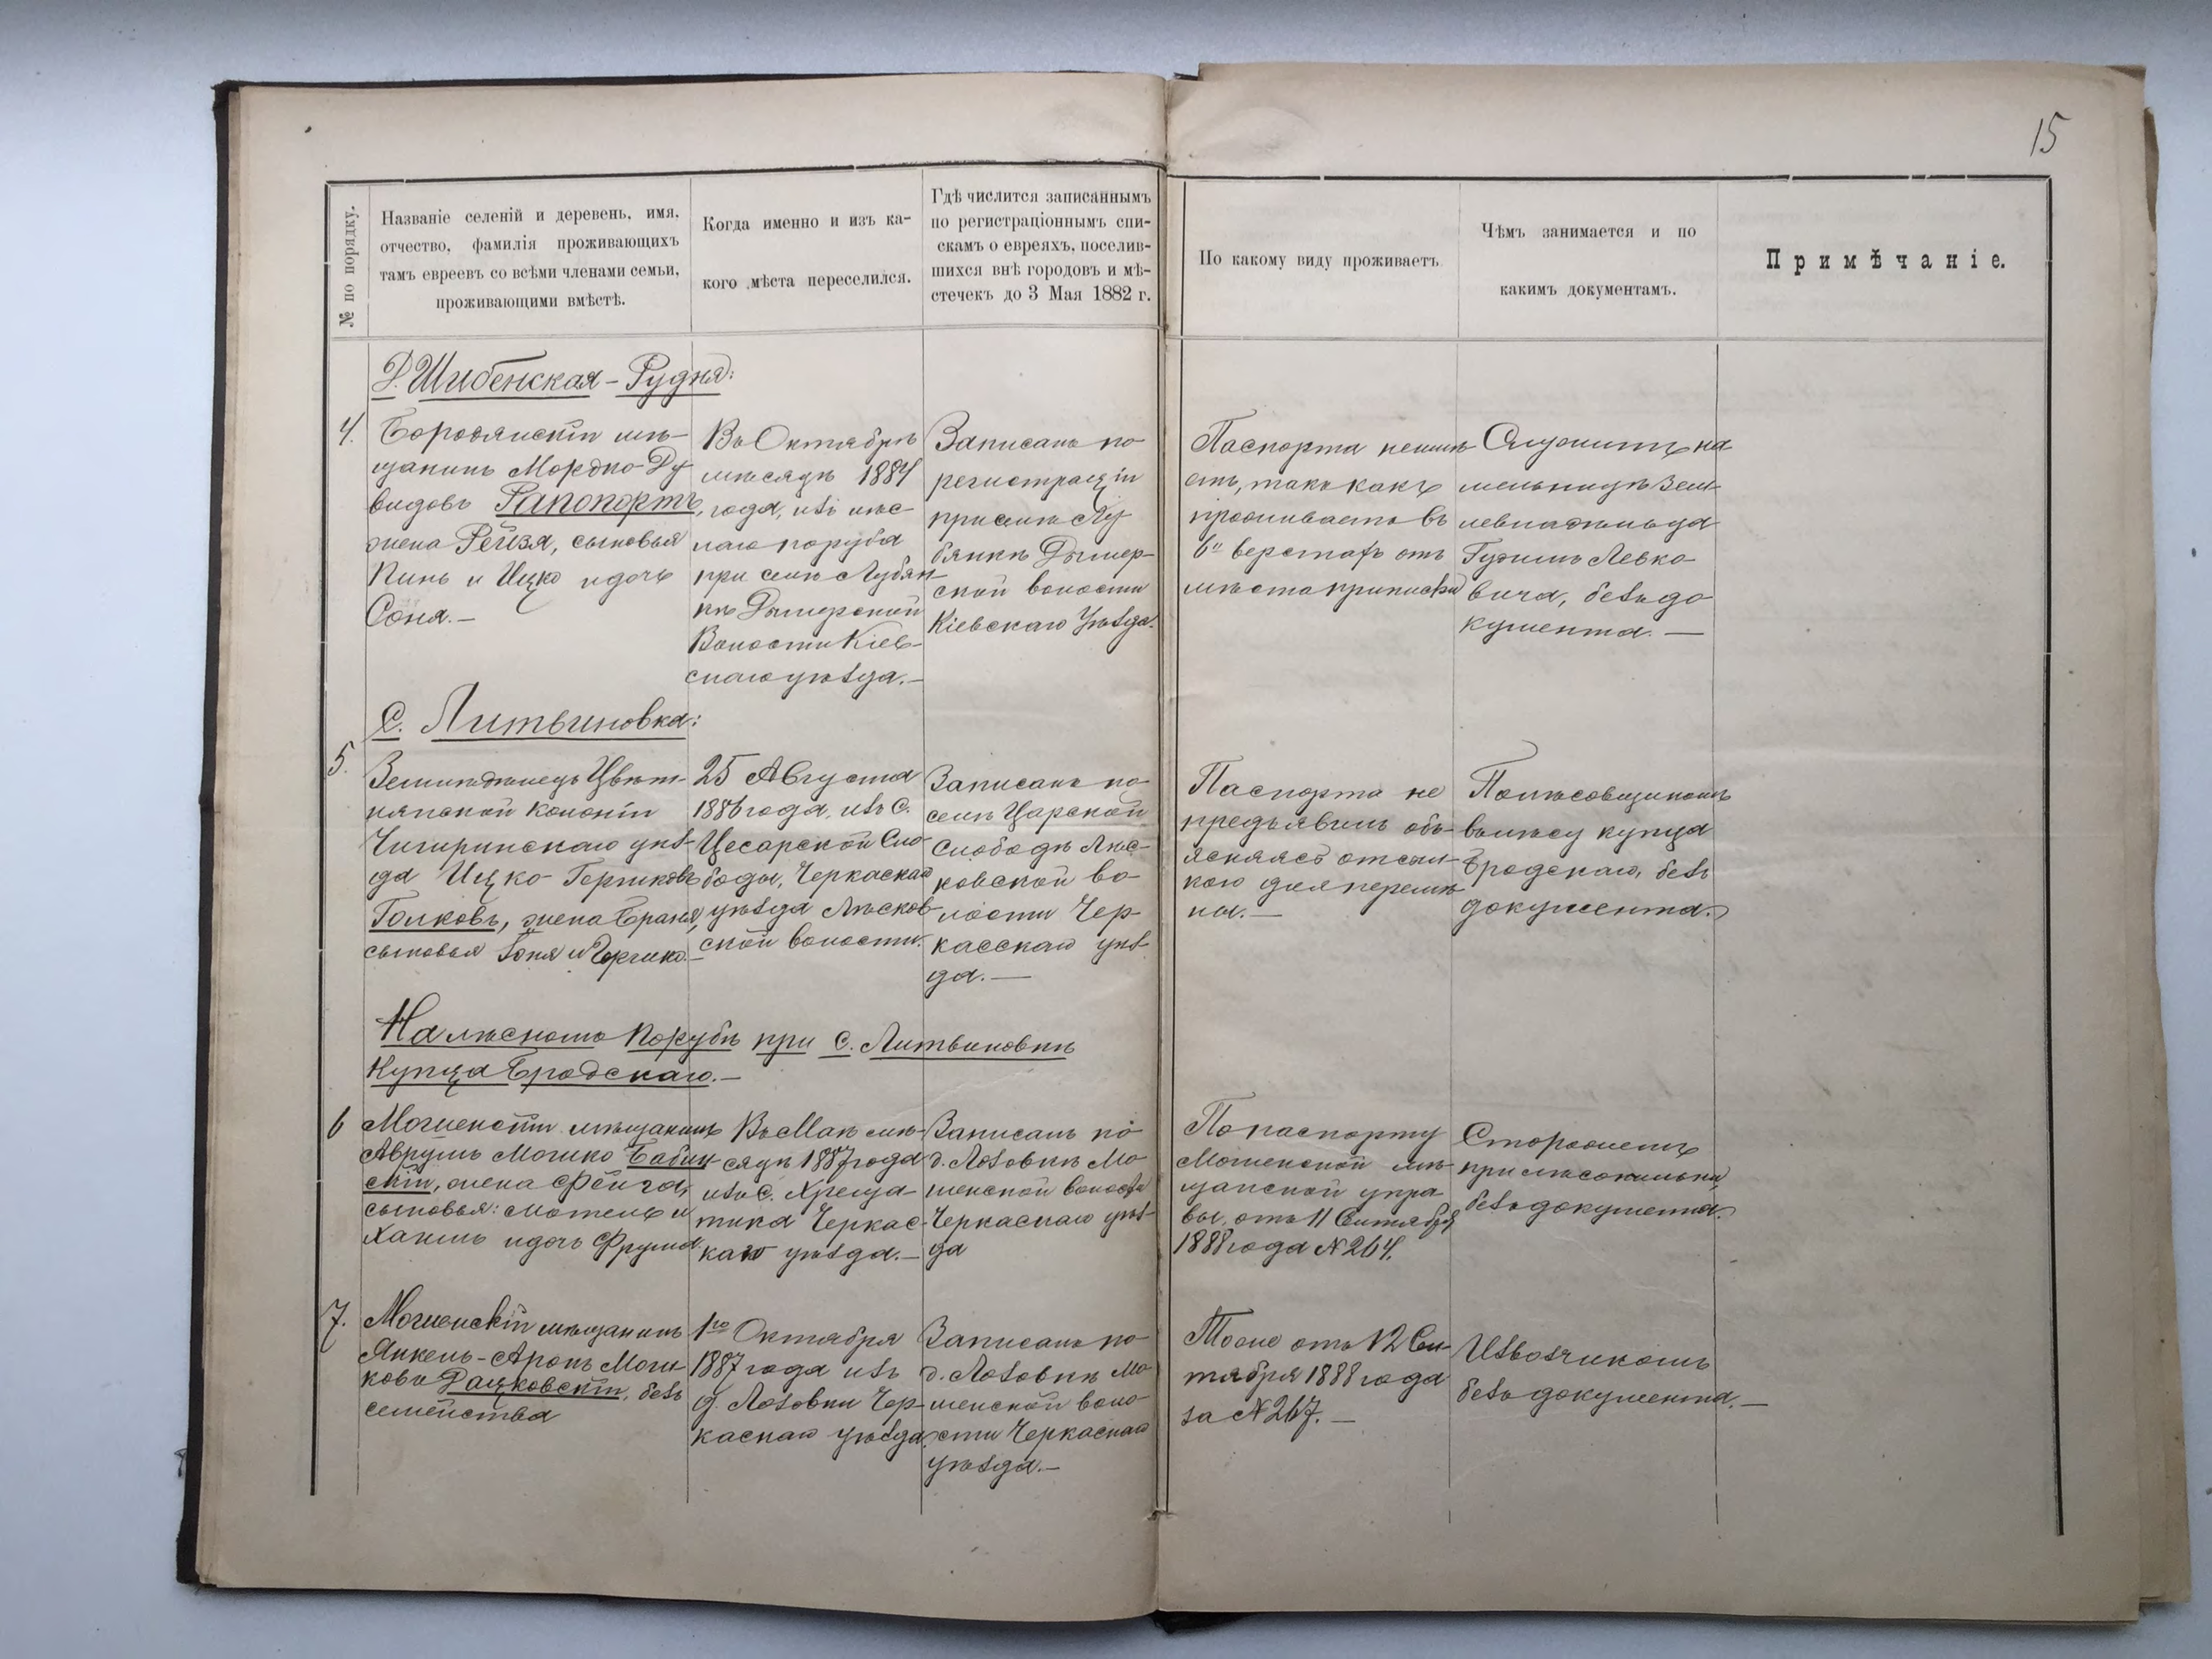 15
№ по порядку.
Названіе селеній и деревень, имя,
отчество, фамилія проживающихъ
тамъ евреевъ со всѣми членами семьи,
проживающими вмѣстѣ.
Когда именно и изъ ка-
кого мѣста переселился.
Гдѣ числится записаннымъ
по регистраціоннымъ спи-
скамъ о евреяхъ, поселив-
шихся внѣ городовъ и мѣ-
стечекъ до 3 Мая 1882 г.
По какому виду проживаетъ
Чѣмъ занимается и по
какимъ документамъ.
Примѣчаніе.
Д. Шибенская-Рудня:
4.
Бородянскій мѣ-
щанинъ Мордко Ду
видовъ Рапопортъ,
жена Рейзя, сыновья
Пинь и Ицко и дочь
Соня.-
Въ Октябрѣ
мѣсяцѣ 1884
года, изъ лѣс
наго поруба
при селѣ Лубян-
кѣ Дымерской
Волости Кіев-
скаго уѣзда.-
Записанъ по
регистраціи
при селѣ Лу
бянкѣ Дымер-
ской волости
Кіевскаго Уѣзда.
Паспорта неимѣ
етъ, такъ какъ
проживаетъ въ
6и верстахъ отъ
мѣста приписки
Служитъ на
мельницѣ Зем-
левладѣльца
Левко-
вича, безъ до
кумента.-
С. Литвиновка:
5.
Земледѣлецъ Цвѣт-
нянской колоніи
Чигиринскаго уѣз-
да Ицко Гершковъ
Голковъ, жена Браня,
сыновья Іоня и Гершко.-
25 Августа
1886 года, изъ С.
Цесарской Сло-
боды, Черкаскаго
уѣзда Лѣсков-
ской волости.
Записанъ по
селѣ Царской
Слободѣ Лѣс-
ковской во-
лости Чер-
касскаго уѣз-
да.-
Паспорта не
предъявилъ объ-
ясняясь отсыл-
кою для перемѣ
ны.-
Полѣсовщикомъ
въ лѣсу купца
Бродскаго, безъ
документа.
На лѣсномъ порубѣ при С. Литвиновкѣ
Купца Бродскаго.-
6
Мошенскій мѣщанинъ
Аврумъ Мошко Бабин
скій, жена Фейга,
сыновья: Мотель и
Хаимъ и дочь Фрума
Въ Маѣ мѣ-
сяцѣ 1887 года
изъ С. Креща-
тика Черкас-
каго уѣзда.-
Записанъ по
д. Лозовкѣ Мо
шенской волости
Черкаскаго уѣз-
да
По паспорту
Мошенской мѣ-
щанской упра-
вы, отъ 11 Сентября
1888 года № 264.
Сторожемъ
при лѣсопильни,
безъ документа.
7.
Мошенскій мѣщанинъ
Янкель-Аронъ Мош-
ковъ Рацковскій, безъ
семейства
1го Октября
1887 года изъ
д. Лозовки Чер-
каскаго уѣзда
Записанъ по
д. Лозовкѣ Мо
шенской воло-
сти Черкаскаго
уѣзда.-
Тоже отъ 12 Сен-
тября 1888 года
за № 267.-
Извозчикомъ
безъ документа.-